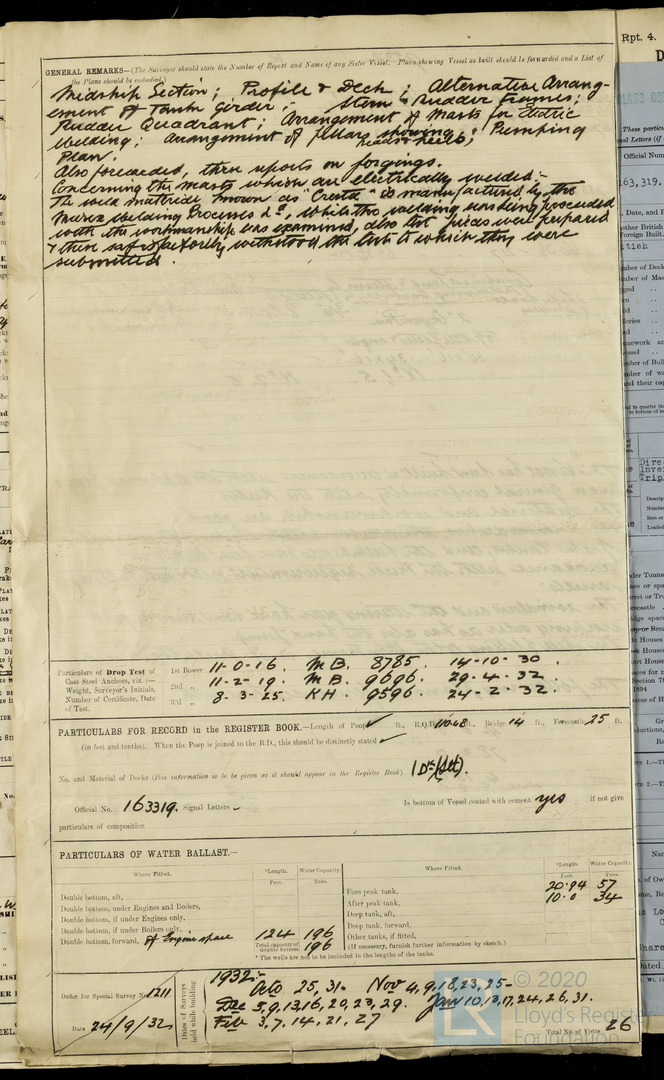 GENERAL REMARKS—(The Surveyor should state the Number of Report and Name of any Sister Vessel. Plans showing Vessel as built should be forwarded and a List of
the Plans should be embodied.)
Midship Section; Profile & Deck; Alternative Arrang-
ement of Tank Girder; Stern & Rudder Frames;
Rudder Quadrant; Arrangement of Masts for Electric
Welding; Arrangement of pillars showing heads & heels; Pumping
Plan.
Also forwarded, three reports on forgings.
Concerning the masts which are electrically welded:-
The weld material known as "Cresta" is manufactured by the
Murex Welding Processes Ld, whilst the welding was being proceeded
with the workmanship was examined, also test pieces were prepared
& these satisfactorily withstood the tests to which they were
submitted.
Particulars of Drop Test of
Cast Steel Anchors, viz.:—
Weight, Surveyor's Initials,
Number of Certificate, Date
of Test.
1st Bower 11-0-16. M B. 8785. 14-10-30.
2nd „ 11-2-19. M B. 9696. 29-4-32.
3rd „ 8-3-25. K H. 9596. 24-2-32.
PARTICULARS FOR RECORD in the REGISTER BOOK.—Length of Poop ✓ ft., R.Q.D. ft., Bridge 14 ft., Forecastle 25 ft.
(in feet and tenths). When the Poop is joined to the B.D., this should be distinctly stated ✓
No. and Material of Decks (this information is to be given as it should appear in the Register Book) 1 Dk (Stl).
Official No. 163319. Signal Letters - Is bottom of Vessel coated with cement yes if not give
particulars of composition
PARTICULARS OF WATER BALLAST.—
Where Fitted. *Length. Water Capacity. Where Fitted. *Length. Water Capacity.
Feet. Tons. Feet. Tons.
Double bottom, aft, Fore peak tank, 20.94 57
Double bottom, under Engines and Boilers, After peak tank, 10.0 34
Double bottom, if under Engines only, Deep tank, aft,
Double bottom, if under Boilers only, Deep tank, forward,
Double bottom, forward, of Engine space 124 196 Other tanks, if fitted,
Total capacity of double bottom 196 (If necessary, furnish further information by sketch.)
* The wells are not to be included in the lengths of the tanks.
Order for Special Survey No. 1211
Date 24/9/32
Dates of Surveys held while building
1932:-
Octo 25, 31. Nov 4, 9, 18, 23, 25-
Dec 5, 9, 13, 16, 20, 23, 29. Jan 10, 13, 17, 24, 26, 31.
Feb 3, 7, 14, 21, 27
Total No. of Visits 26
© 2020
Lloyd's Register
Foundation
LR
Rpt. 4.
These particu
Official Num
163,319.
Date, and I